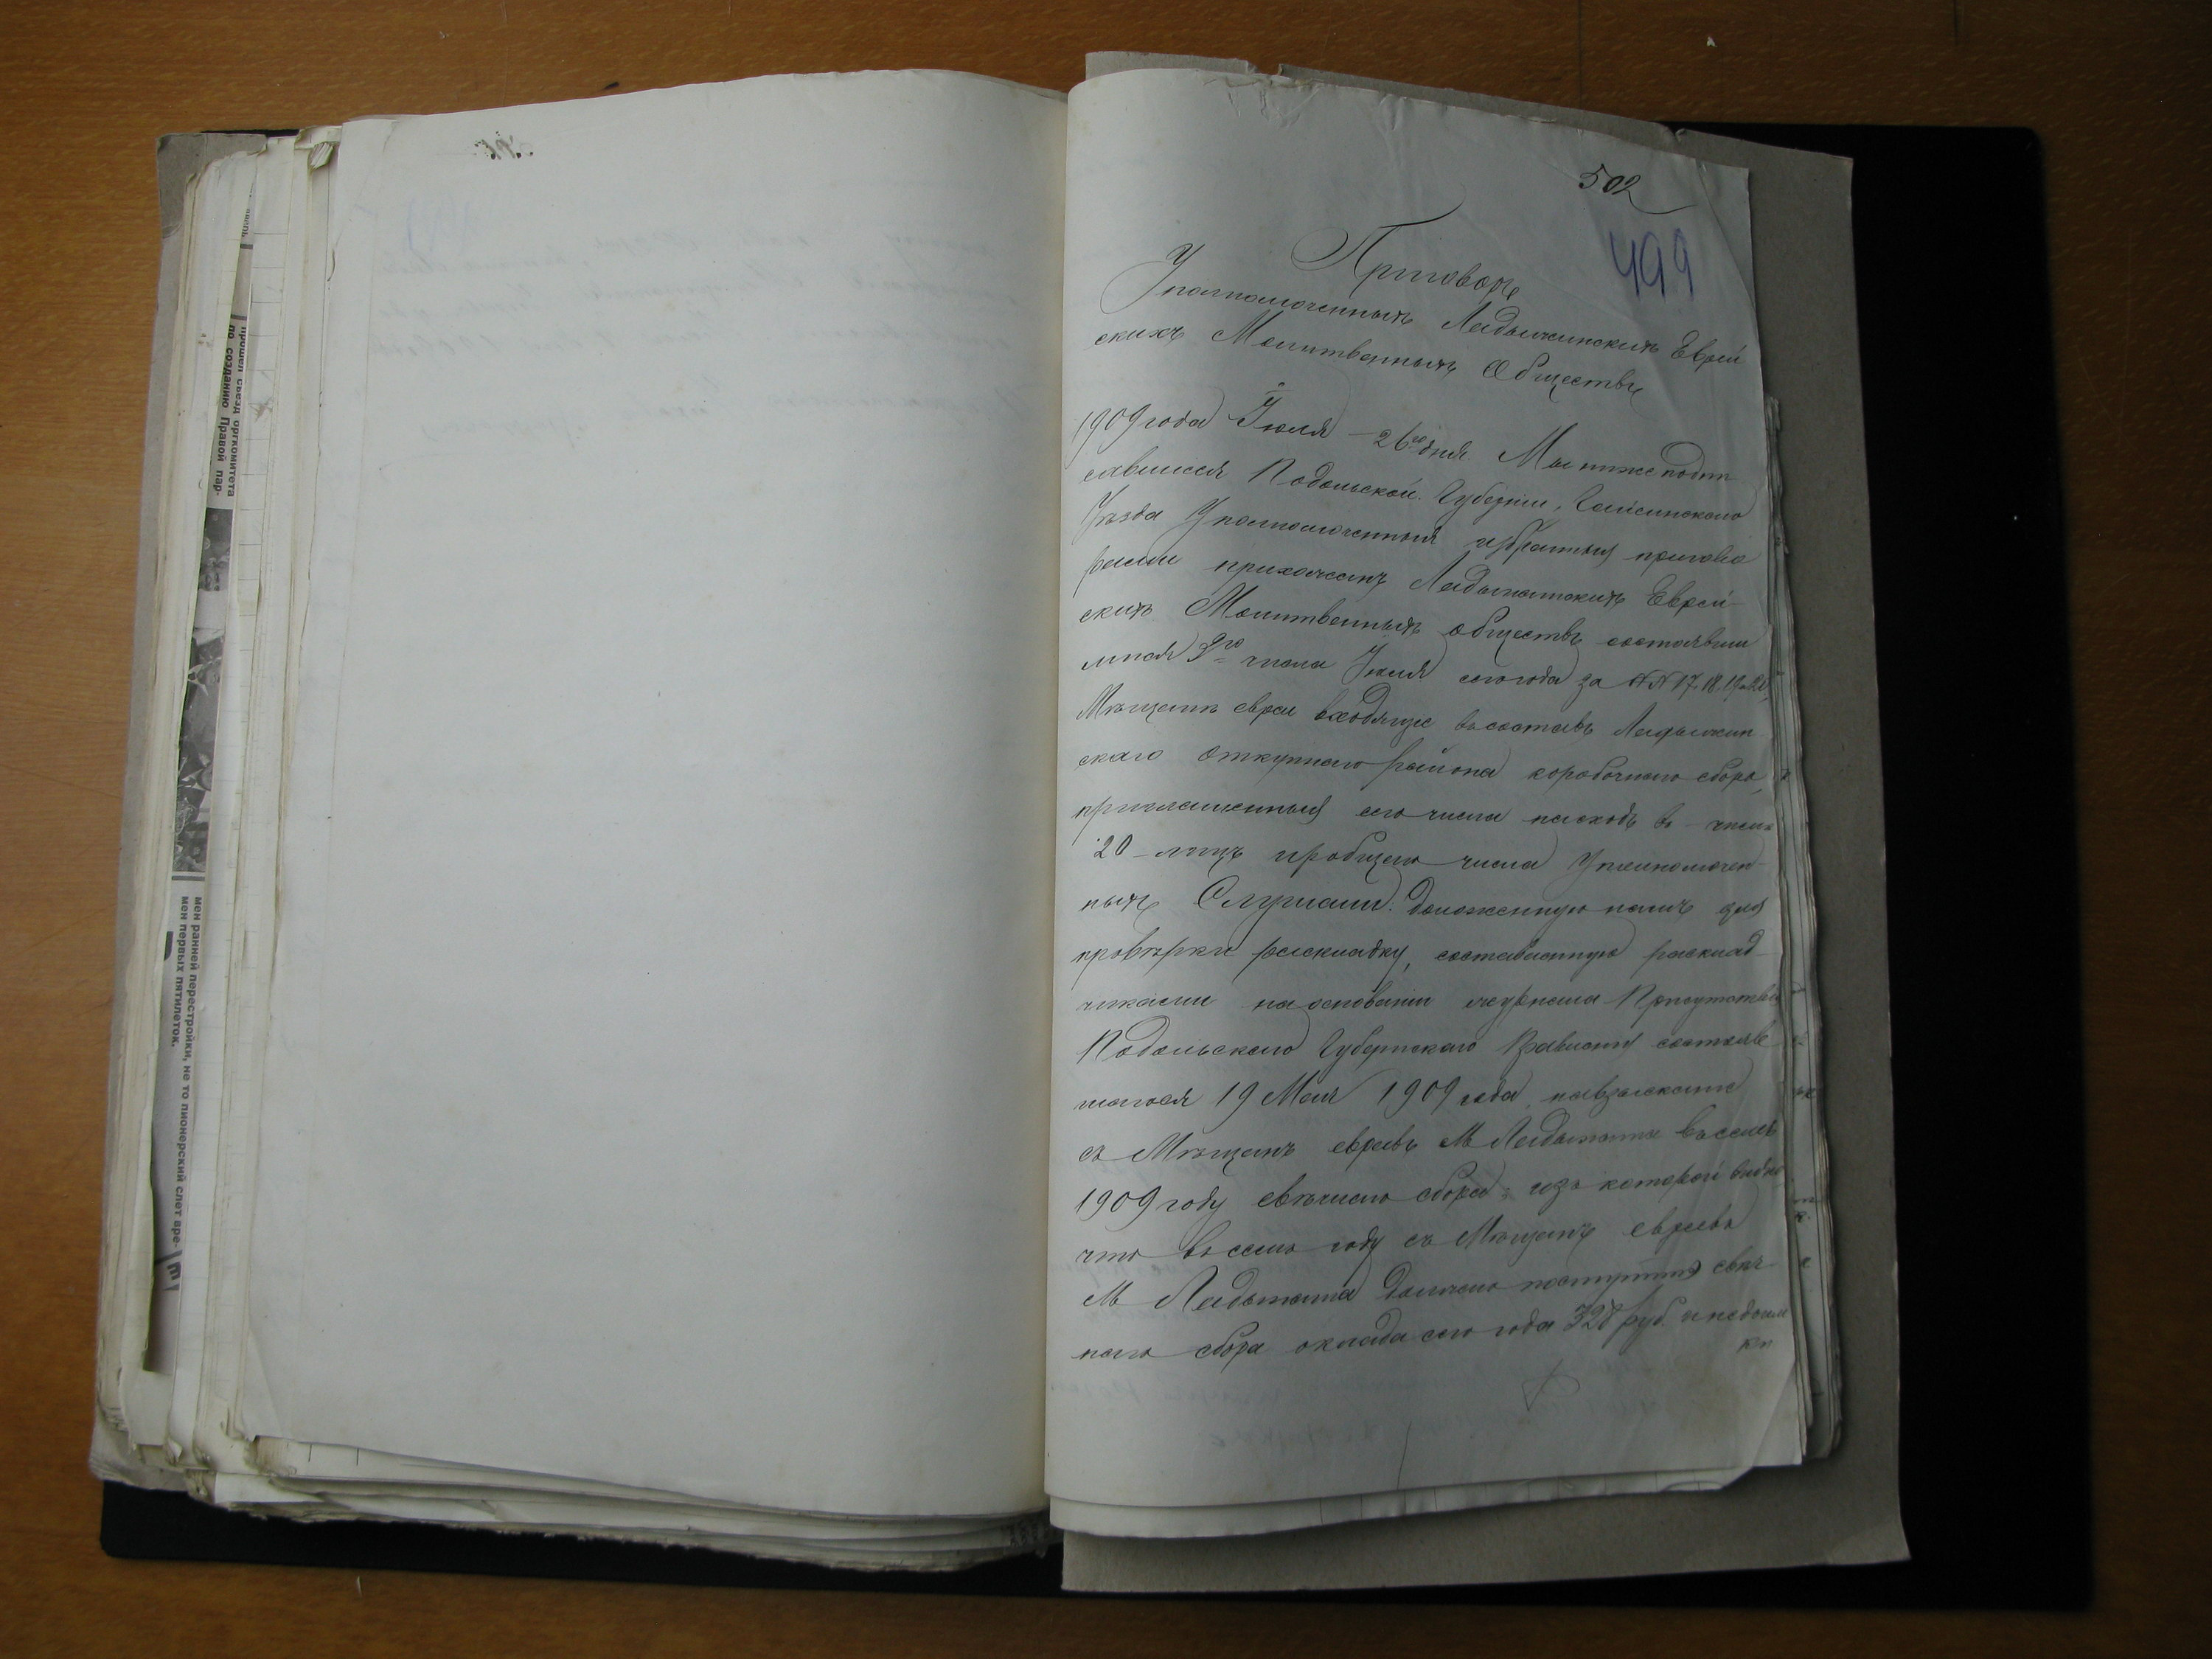 502
499
Приговоръ
Уполномоченныхъ Ладыжинскихъ Еврей
скихъ Молитвенныхъ Обществъ
1909 года Іюля 26го дня Мы нижеподпи
савшіеся Подольской Губерніи, Гайсинскаго
Уѣзда Уполномоченныя избранныя пригово
рами прихожанъ Ладыжинскихъ Еврей-
скихъ Молитвенныхъ обществъ состоявши
мися числа Іюля сего года за №№ 17. 18. 19
Мѣщане евреи входящіе въ составъ Ладыжин
скаго откупнаго района коробочнаго сбора,
приглашенныя сего числа на сходъ въ числѣ
20 лицъ изъ общаго числа Уполномочен-
ныхъ Слушали: доложенную намъ для
провѣрки раскладку, составленную расклад-
чиками на основаніи журнала Присутствія
Подольскаго Губернскаго Правленія состояв
шагося 19 Мая 1909 года, на взысканіе
съ Мѣщанъ евреевъ М Ладыжина въ семъ
1909 году свѣчнаго сбора: изъ которой видно
что въ семъ году съ Мѣщанъ евреевъ
М Ладыжина должно поступить свѣч-
наго сбора оклада сего года 328 руб. и недоим
ки
прошел съезд оргкомитета
по созданию Правой пар-
мен ранней перестройки, не то пионерский слет вре-
мен первых пятилеток.